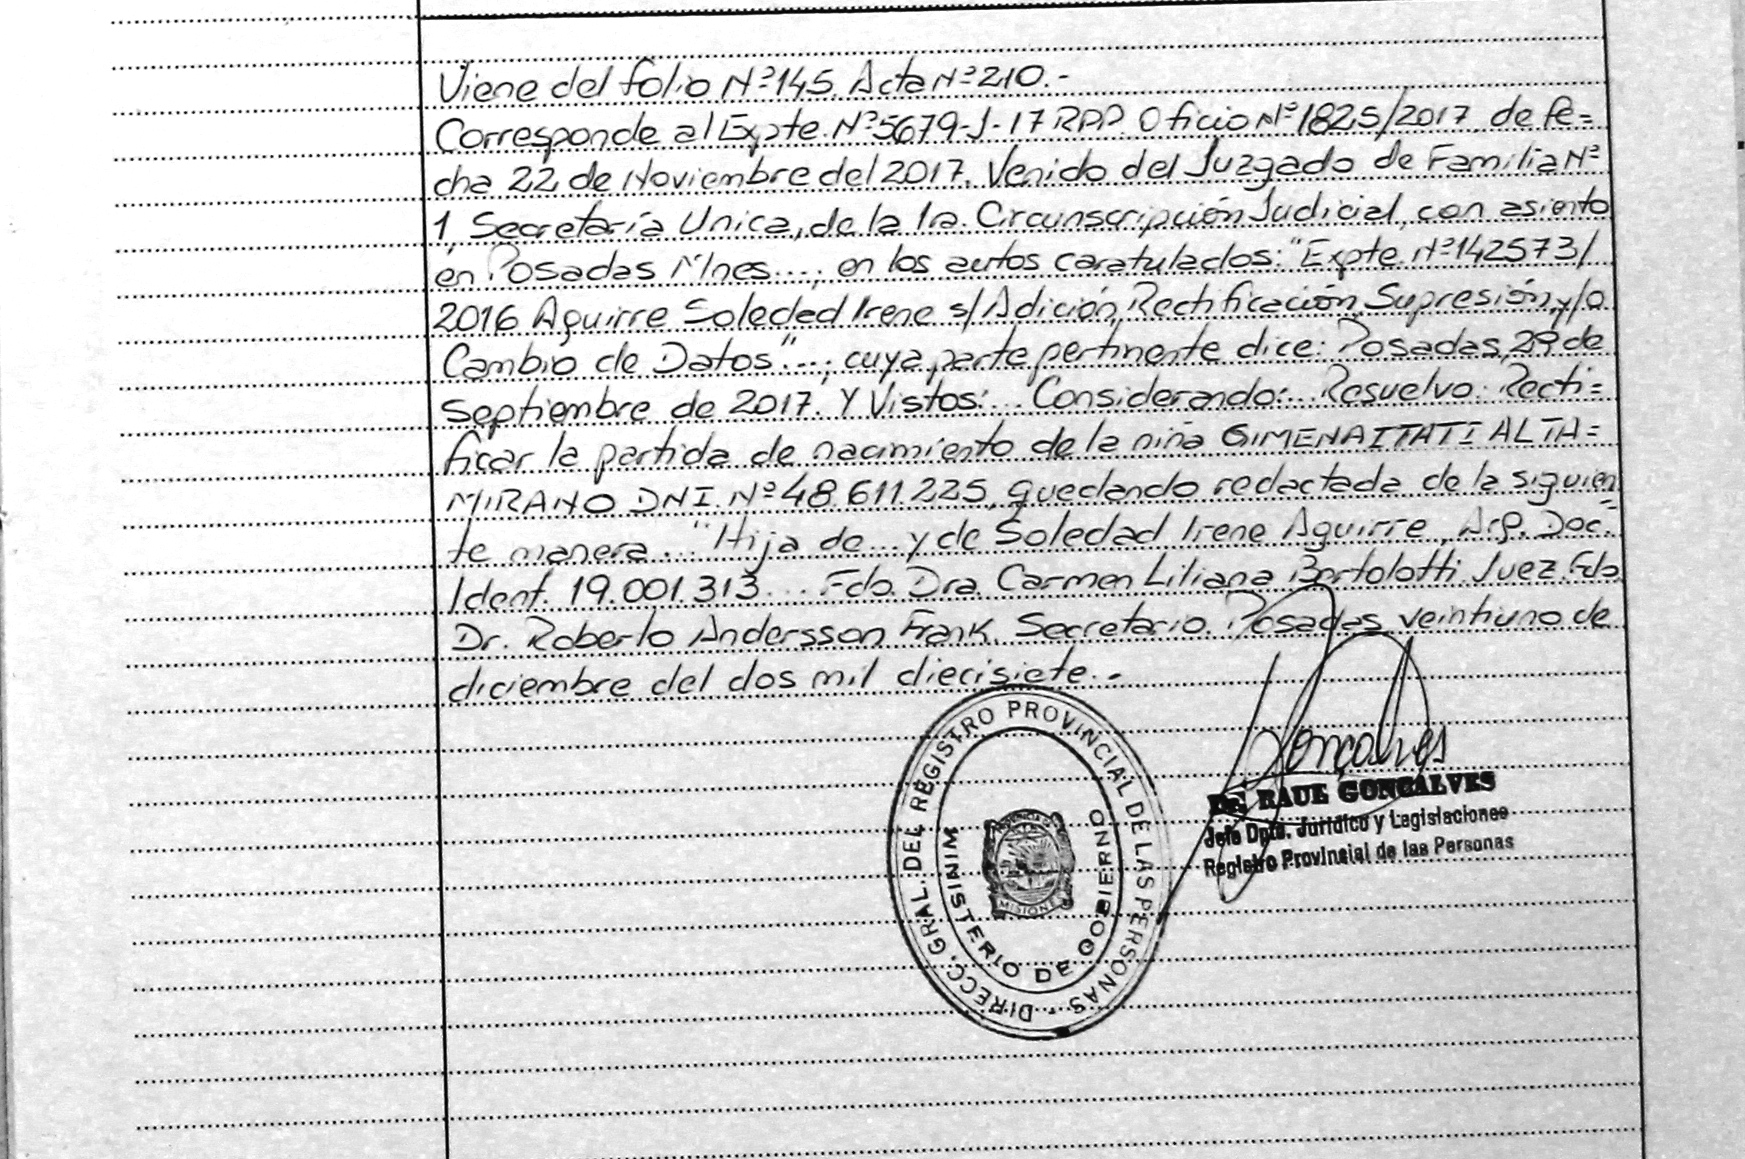 Viene del folio Nº 145. Acta Nº 210.-
Corresponde al Expte. Nº 5679-J-17 RPP. Oficio Nº 1825/2017, de fe=
cha 22 de Noviembre del 2017. Venido del Juzgado de Familia Nº
1, Secretaría Unica, de la 1ra. Circunscripción Judicial, con asiento
en Posadas Mnes...; en los autos caratulados: "Expte. Nº 142573/
2016 Aguirre Soledad Irene s/Adición, Rectificación, Supresión, y/o
Cambio de Datos"...; cuya parte pertinente dice: Posadas, 29 de
Septiembre de 2017. Y Vistos:... Considerando:... Resuelvo: Recti=
ficar la partida de nacimiento de la niña GIMENA ITATI ALTA=
MIRANO DNI. Nº 48.611.225, quedando redactada de la siguien
te manera... "Hija de... y de Soledad Irene Aguirre, Arg. Doc.
Ident. 19.001.313... Fdo. Dra. Carmen Liliana Bertolotti Juez. Fdo.
Dr. Roberto Andersson Frank. Secretario. Posadas, veintiuno de
diciembre del dos mil diecisiete.-
DIRECC. GRAL. DEL REGISTRO PROVINCIAL DE LAS PERSONAS
MINISTERIO DE GOBIERNO
MISIONES
Gonçalves
Dr. RAUL GONCALVES
Jefe Dpto. Jurídico y Legislaciones
Registro Provincial de las Personas